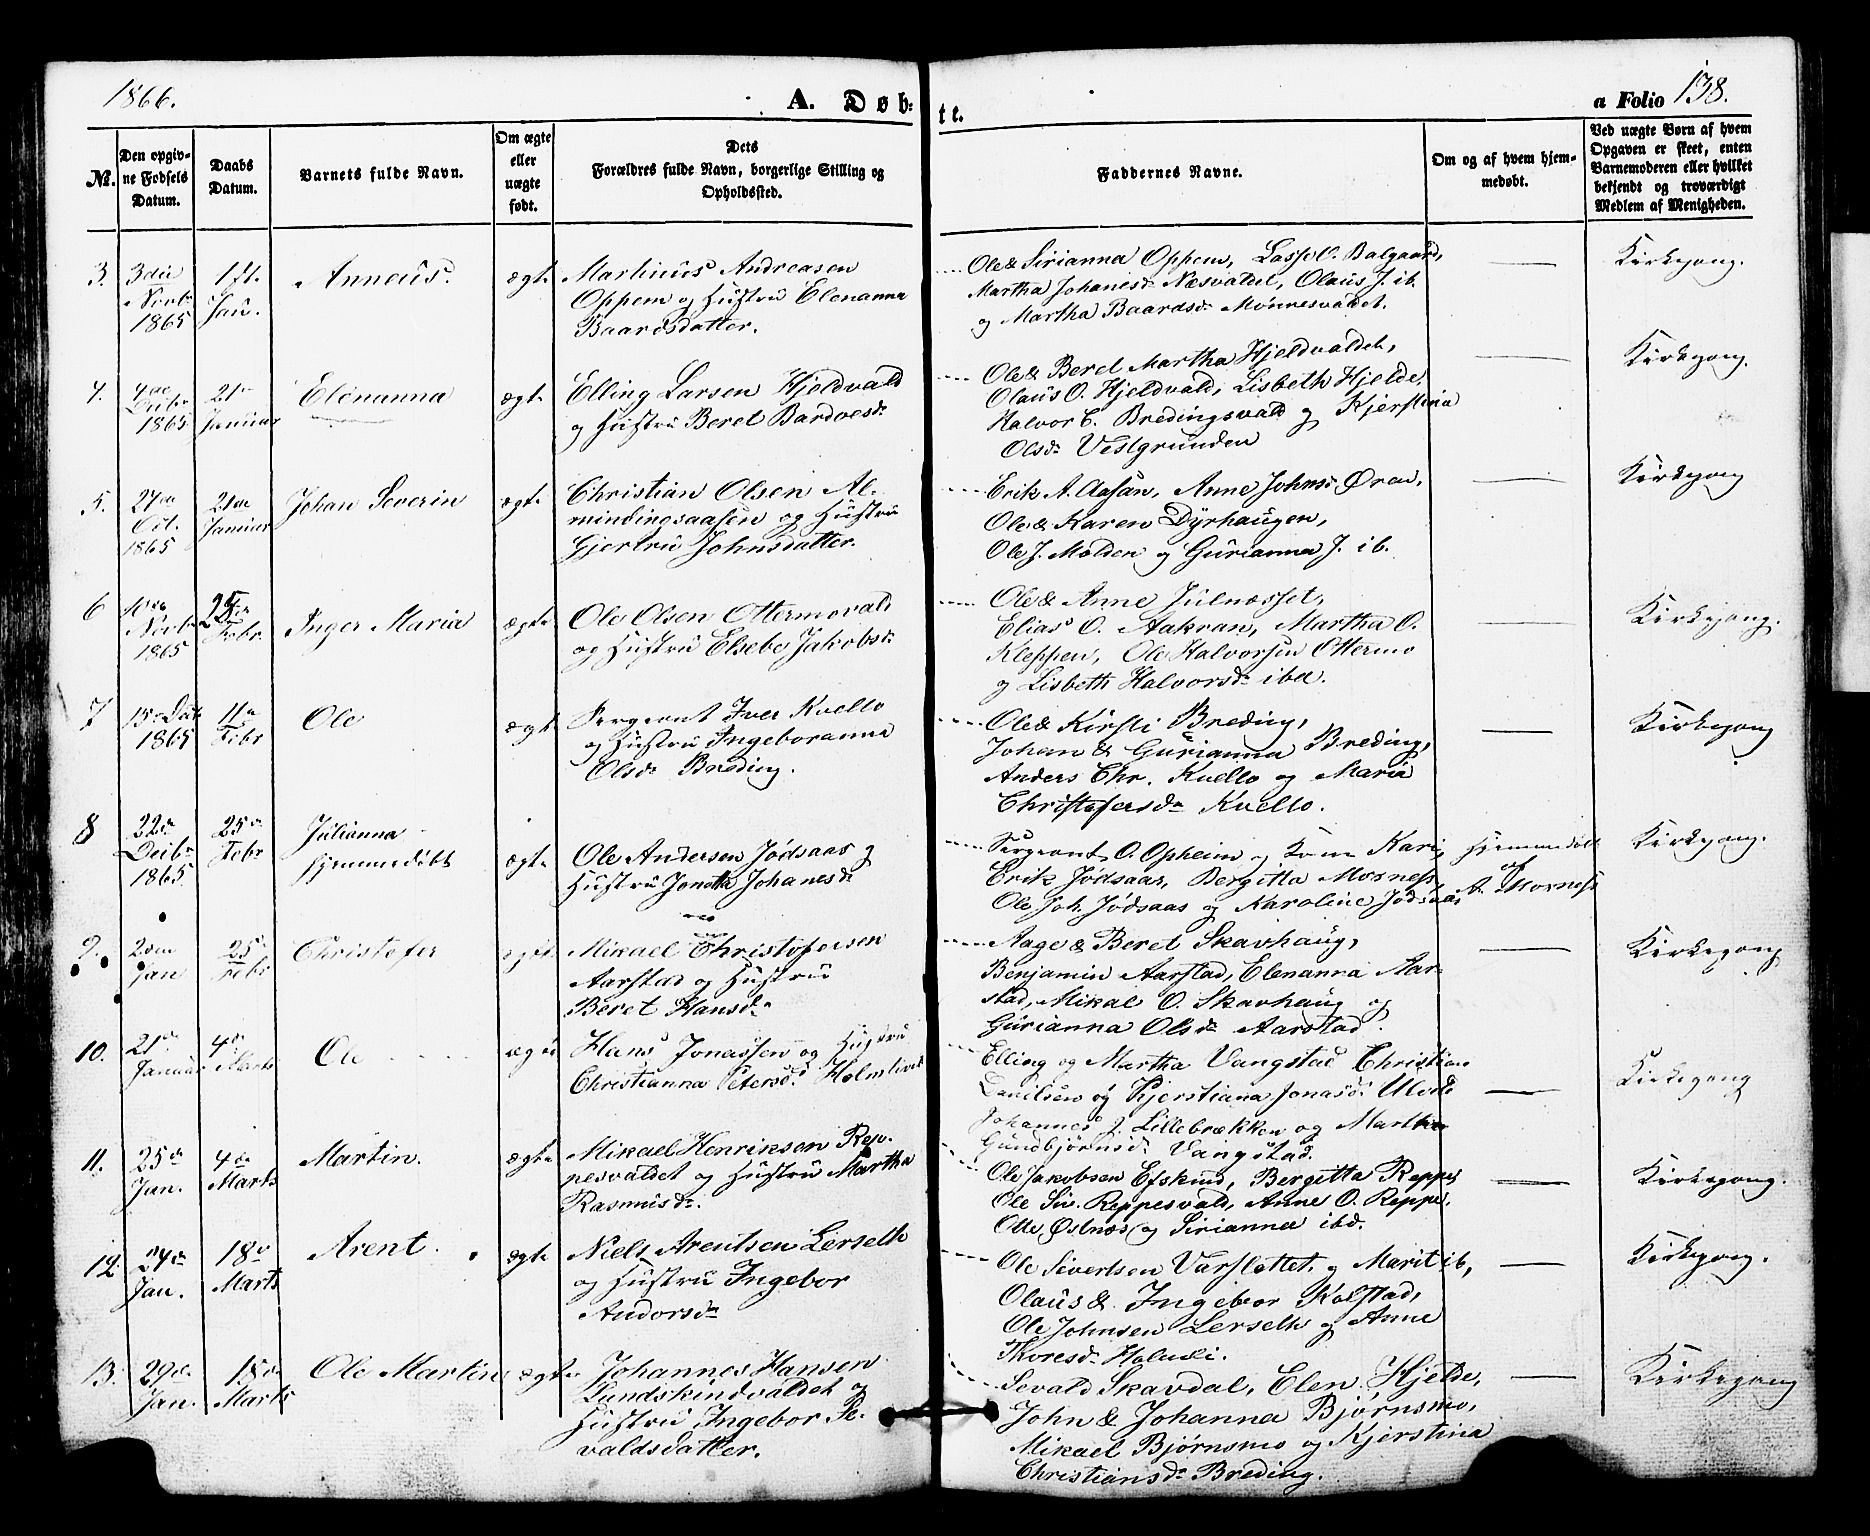 1866.
A. Døb:
te.
a Folio 138.
№.
Den opgiv-
ne Fødsels
Datum.
Daabs
Datum.
Barnets fulde Navn.
Om ægte
eller
uægte
født.
Dets
Forældres fulde Navn, borgerlige Stilling og
Opholdssted.
Faddernes Navne.
Om og af hvem hjem-
medøbt.
Ved uægte Børn af hvem
Opgaven er skeet, enten
Barnemoderen eller hvilket
bekjendt og troværdigt
Medlem af Menigheden.
3. 3die
Novbr
1865
1ste
Jan.
Anneus.
ægte
Martinus Andreasen
Oppem og Hustru Elenanna
Baardsdatter.
Ole & Sirianna Oppem, Lasse O. Balgaard,
Martha Johanesdr Næsvaldet, Olaus J. ib.
og Martha Baardsdr Monnesvaldet.
Kirkegang.
4. 4de
Debr
1865
21de
Januar
Elenanna
ægte
Elling Larsen Hjeldvald
og Hustru Beret Bardoesdr
Ole & Beret Martha Hjeldvaldet,
Olaus O. Hjeldvald, Lisbeth Hjelde,
Halvor E. Bredingsvald og Kjerstina
Olsdr Vestgrunden
Kirkegang.
5. 27de
Oct.
1865
21de
Januar
Johan Severin
ægte
Christian Olsen Al-
mindingsaasen og Hustru
Gjertru Johnsdatter.
Erik A. Aasan, Anne Johnsdr Øren,
Ole & Karen Dyrhaugen,
Ole J. Molden og Gurianna J. ib.
Kirkegang
6 10de
Novbr
1865
Febr.
Inger Maria
ægte
Ole Olsen Ottermovald
og Hustru Elsebe Jakobsdr
Ole & Anne Julnæsset,
Elias O. Aakran, Martha O.
Kleppen, Ole Halvorsen Ottermo
og Lisbeth Halvorsdr ibd.
Kirkegang.
7 15de Debr
1865
11te
Febr
Ole
ægte
Sergeant Iver Kvello
og Hustru Ingeboranna
Olsdr Breding.
Ole & Kirsti Breding,
Johan & Gurianna Breding,
Anders Chr. Kvello og Maria
Christofersdr Kvello.
Kirkegang
8 22de
Decbr
1865
25de
Febr
Julianna
hjemmedøbt
ægte
Ole Andersen Jødsaas og
Hustru Jonetta Johanesdr
Sergeant O. Opheim og Kone Kari,
Erik Jødsaas, Bergitta Morness,
Ole Joh. Jødsaas og Karoline Jødsaas
Hjemmedøbt
af
A. Morness
Kirkegang.
9. 2den
Jan
25de
Febr
Christofer
ægte
Mikael Christofersen
Aarstad og Hustru
Beret Hansdr
Aage & Beret Skavhaug,
Benjamin Aarstad, Elenanna Aar-
stad, Mikal O. Skavhaug og
Gurianna Olsdr Aarstad.
Kirkegang
10. 21de
Januar
4de
Marts
Ole
ægte
Hans Jonassen og Hustru
Christianna Petersdr
Elling og Martha Vangstad Christian
Danielsen og Kjerstiana Jonasdr
Johannes J. Lillebrækken og Martha
Gundbjørnsdr Vangstad.
Kirkegang
11. 25de
Jan.
4de
Marts
Martin.
ægte
Mikael Henriksen Rep-
pesvaldet og Hustru Martha
Rasmusdr.
Ole Jakobsen Efskind, Bergitta Reppe,
Ole Siv. Reppesvald, Anne O. Reppe,
Otte Østnæs og Sirianna ibd.
Kirkegang.
12. 24de
Jan.
18de
Marts
Arent.
ægte
Niels Arentsen Lerseth
og Hustru Ingebor
Andorsdr
Ole Sivertsen Varslottet og Marit ib,
Olaus & Ingebor Kolstad,
Ole Johnsen Lerseth og Anne
Thoresdr
Kirkegang.
13. 29de
Jan.
18de
Marts
Ole Martin
ægte
Johannes Hansen
Sundskindvaldet og
Hustru Ingebor Se-
valdsdatter.
Sevald Skavdal, Elen Hjelde,
John & Johanna Bjørnsmo,
Mikael Bjørnsmo og Kjerstina
Christiansdr Breding.
Kirkegang